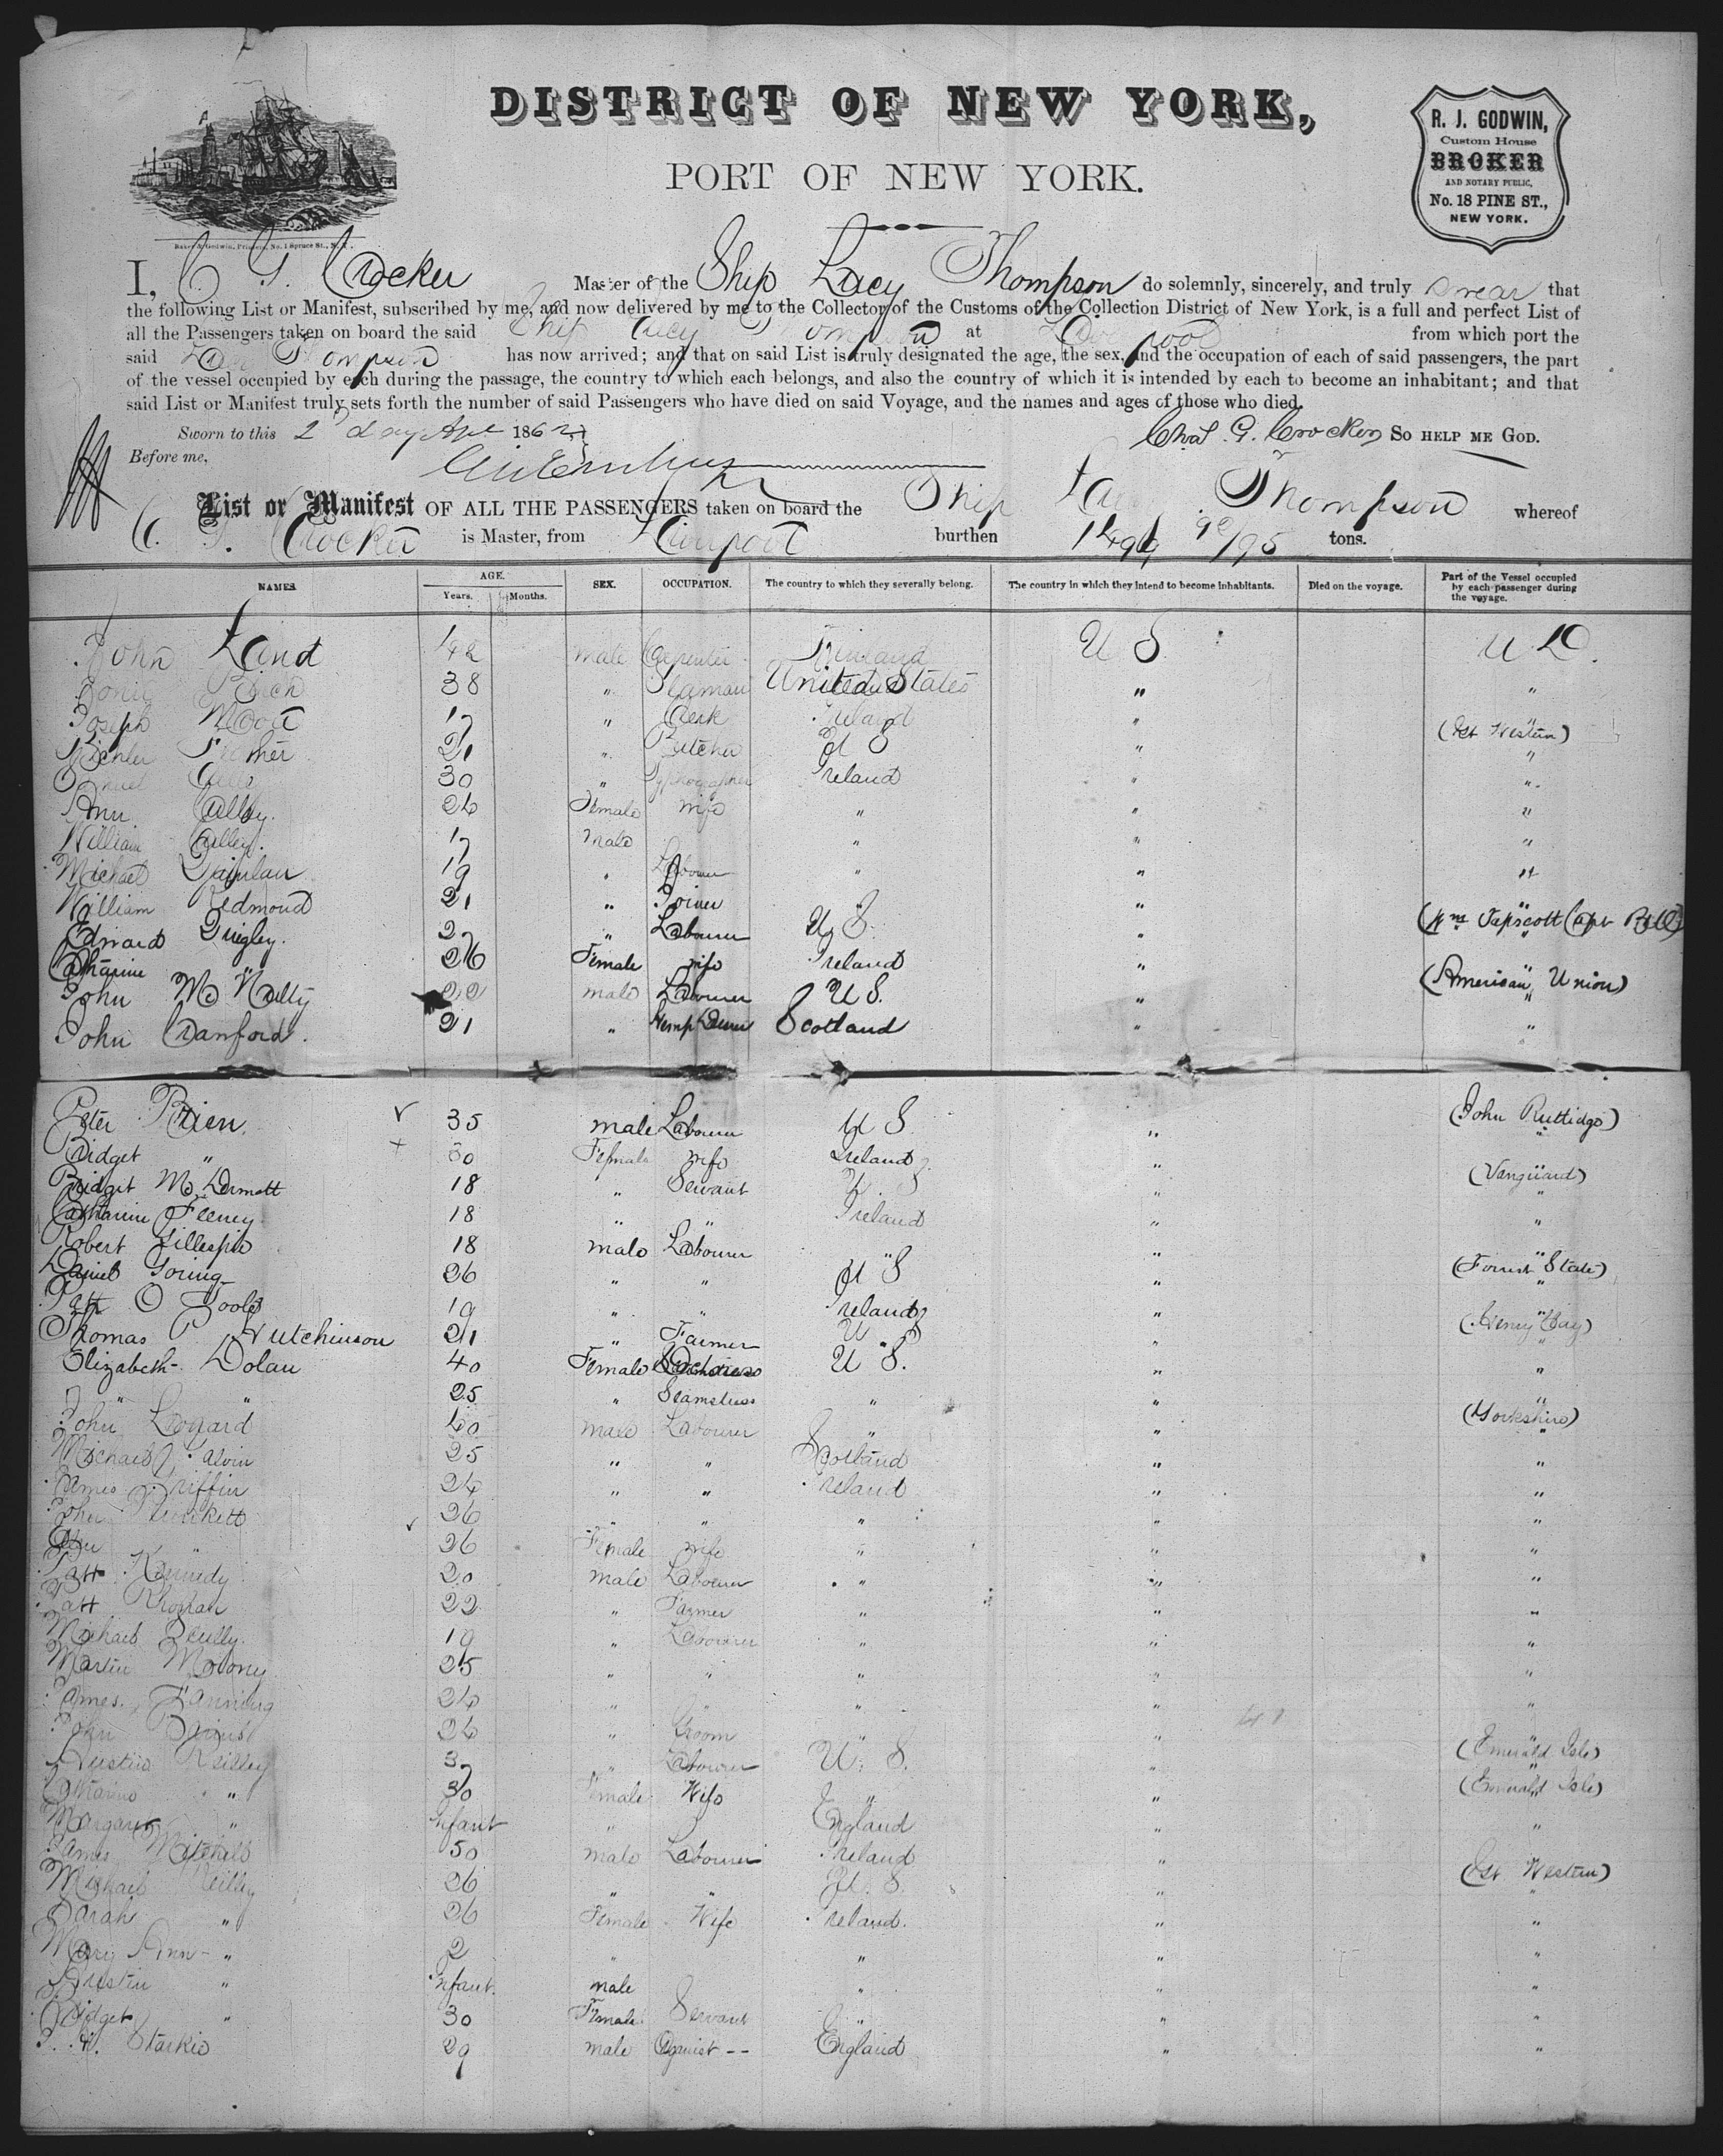 DISTRICT OF NEW YORK,
PORT OF NEW YORK.
R. J. GODWIN,
Custom House
BROKER
AND NOTARY PUBLIC,
No. 18 PINE ST.,
NEW YORK.
Baker & Godwin, Printers, No. 1 Spruce St., N. Y.
I, C G Crocker Master of the Ship Lucy Thompson do solemnly, sincerely, and truly swear that
the following List or Manifest, subscribed by me, and now delivered by me to the Collector of the Customs of the Collection District of New York, is a full and perfect List of
all the Passengers taken on board the said Ship Lucy Thompson at Liverpool from which port the
said Lucy Thompson has now arrived; and that on said List is truly designated the age, the sex, and the occupation of each of said passengers, the part
of the vessel occupied by each during the passage, the country to which each belongs, and also the country of which it is intended by each to become an inhabitant; and that
said List or Manifest truly sets forth the number of said Passengers who have died on said Voyage, and the names and ages of those who died.
Sworn to this 2 day Apl 1862 Chas. G. Crocker SO HELP ME GOD.
Before me,
List or Manifest OF ALL THE PASSENGERS taken on board the Ship Lucy Thompson whereof
C. G. Crocker is Master, from Liverpool burthen 1499 90/95 tons.
NAMES. AGE. Years. Months. SEX. OCCUPATION. The country to which they severally belong. The country in which they intend to become inhabitants. Died on the voyage. Part of the Vessel occupied by each passenger during the voyage.
John 42 male Carpenter U S
38 " Seaman United States " "
Joseph " Clerk Ireland " "
21 " Butcher U S " (Gt Western) "
30 " Typhographer Ireland " "
Ann Culley 26 Female wife " " "
William Culley. male " " "
Michael Quinlan 19 " Labourer " " "
William Redmond 21 " Joiner " " "
Edward Quigley. " Labourer U S. " (Wm Tapscott Capt Bell) "
Catharine " 26 Female wife Ireland " "
John McNalty 22 male Labourer U S. " (American Union) "
John Cranford. 21 " Hemp Scotland " "
Peter Brien. 35 male Labourer U S " (John Ruttidge) "
Bridget " 30 Female wife Ireland " "
Bridget McDermott 18 " Servant U. S " (Vanguard) "
Catharine Feeney 18 " " Ireland " "
Robert Gillespie 18 male Labourer " " "
Daniel Young 26 " " U S " (Forrest State) "
Patt O Toole 19 " " Ireland " "
Thomas P. Hutchinson 21 " Farmer U S " (Henry Clay) "
Elizabeth Dolan 40 Female U S. " "
" " 25 " Seamstress " " "
John Leonard 40 male Labourer " " (Yorkshire) "
Michael Galvin 25 " " Scotland " "
James Griffin 24 " " Ireland " "
John 26 " " " " "
Ann " 26 Female wife " " "
Patt Kennedy 20 male Labourer " " "
Patt 22 " Farmer " " "
Michael Scully. 19 " Labourer " " "
Martin Molony 25 " " " " "
James Fanning 24 " " " " "
John 26 " Groom " " "
Austin Reilley " Labourer U. S. " (Emerald Isle) "
Catharine " 30 Female Wife " " (Emerald Isle) "
Margaret " Infant " England " "
James Mitchell 50 male Labourer Ireland " "
Michael Reilley 26 " " U. S. " (Gt Western) "
Sarah " 26 Female Wife Ireland. " "
Mary Ann " 2 " " " "
Austin " Infant. male " " "
Bridget " 30 Female Servant " " "
Starkie 29 male Organist -- England " "